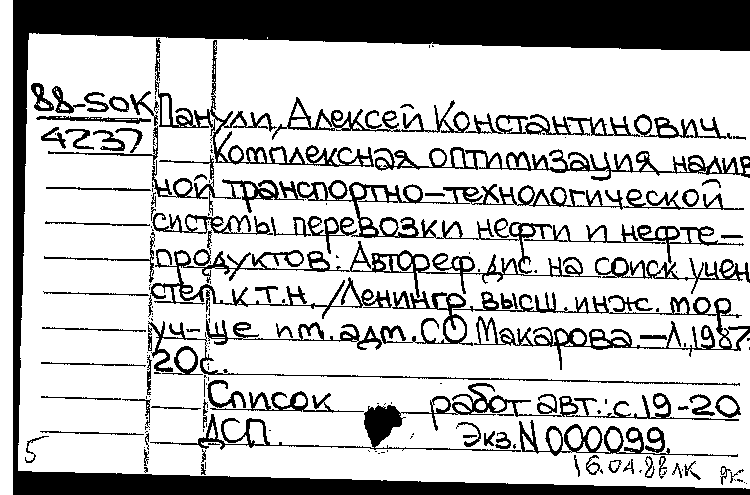 88-SOK Панули, Алексей Константинович.
4237
Комплексная оптимизация налив
ной транспортно-технологической
системы перевозки нефти и нефте-
продуктов: Автореф. дис. на соиск. учен
степ. к.т.н. /Ленингр. высш. инж. мор.
уч-ще им. адм. С.О Макарова. — Л., 1987.-
20с.
Список работ авт.: с. 19-20
ДСП. Экз. N 000099.
5 16.04.88 ЛК РК